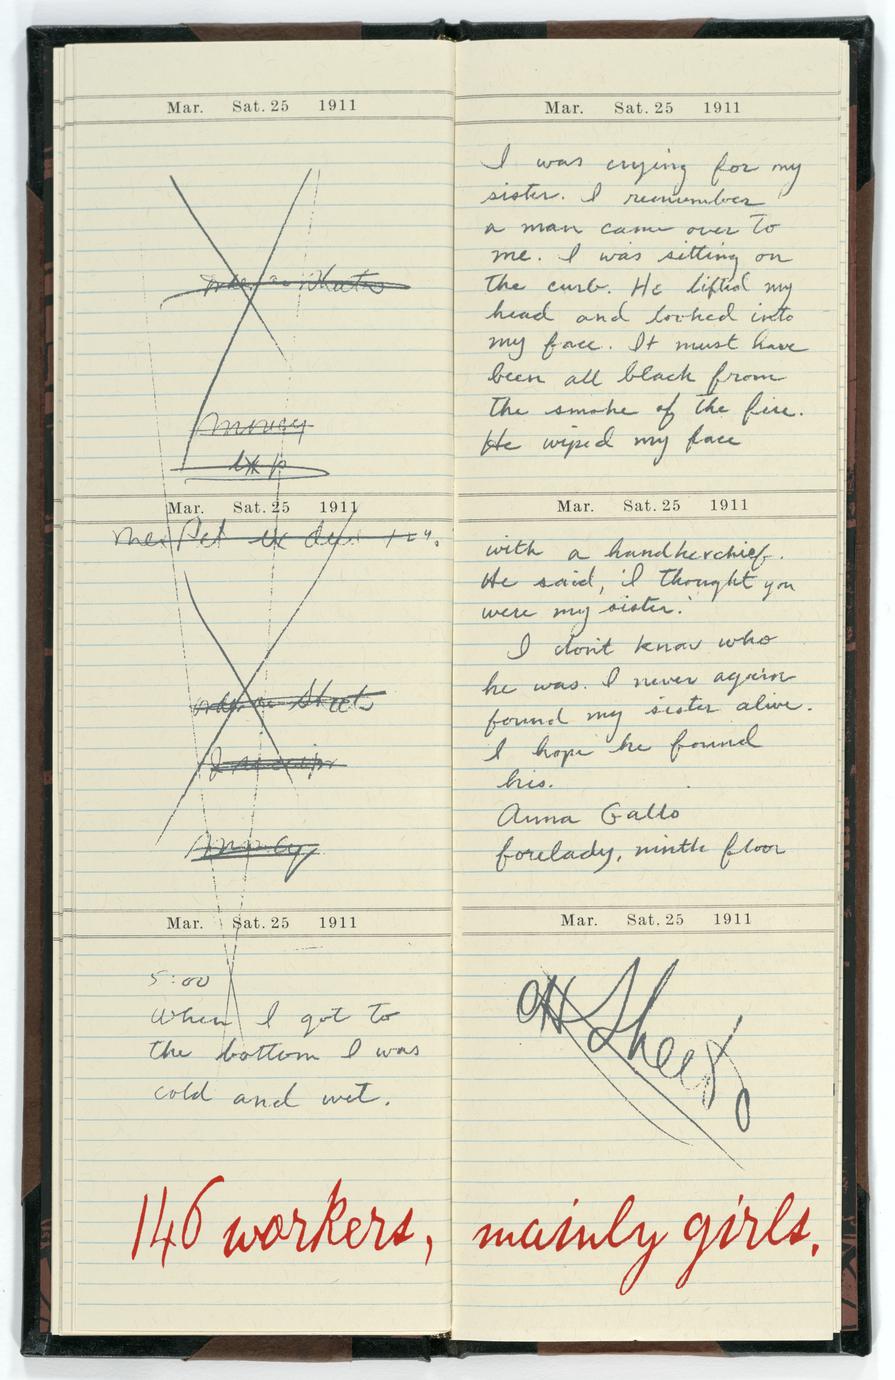 Mar. Sat. 25 1911
money
Mar. Sat. 25 1911
Sheets
Mar. Sat. 25 1911
5:00
When I got to
the bottom I was
cold and wet.
146 workers,
Mar. Sat. 25 1911
I was crying for my
sister. I remember
a man came over to
me. I was sitting on
the curb. He lifted my
head and looked into
my face. It must have
been all black from
the smoke of the fire.
He wiped my face
Mar. Sat. 25 1911
with a handkerchief.
He said, 'I thought you
were my sister.'
I don't know who
he was. I never again
found my sister alive.
I hope he found
his.
Anna Gallo
forelady, ninth floor
Mar. Sat. 25 1911
mainly girls.